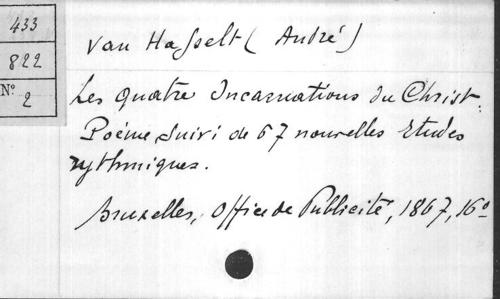 433
822
N° 2
Van Hasselt (André)
Les quatre Incarnations du Christ.
Poéme suivi de 67 nouvelles Etudes
rythmiques.
Bruxelles, Office de Publicité, 1867, 16°